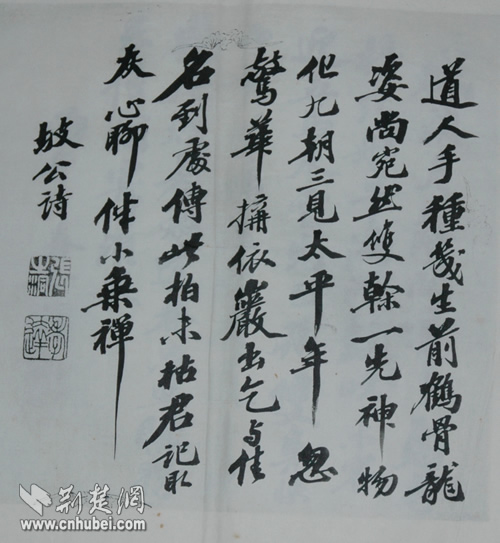 道人手種幾生前鶴骨龍
姿尚宛然雙榦一先神物
化九朝三見太平年忽
驚華搆依巖出乞与佳
名到處傳此柏未枯君記取
灰心聊伴小乘禪
坡公詩
荆楚網
www.cnhubei.com